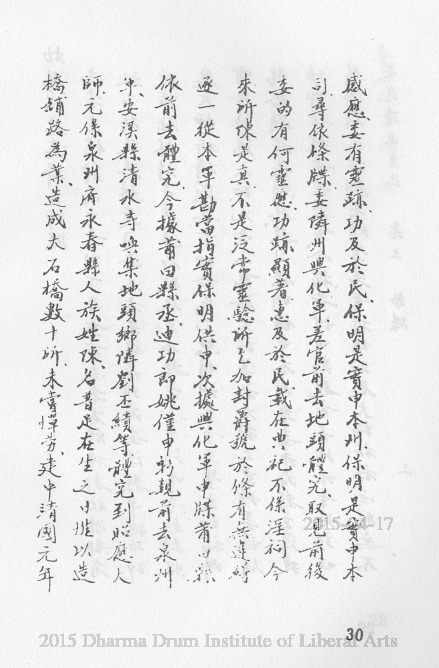 感應、委有靈跡、功及於民、保明是實申本州、保明是實申本
司、尋依條牒委隣州興化軍、差官前去地頭體究、取見前後
委的有何靈應、功跡顯著、惠及於民、載在典祀不係淫祠、今
來所陳是真、不是泛常靈驗、所乞加封爵號、於條有無違碍
逐一從本軍勘當、指實保明供申、次據興化軍申牒莆田縣
依前去體究、今據莆田縣丞迪功郎姚僅申、躬親前去泉州
安溪縣清水寺、喚集地頭鄉隣劉丕績等體究到昭應大
師、元係泉州府永春縣人、族姓陳、名普足、在生之日、惟以造
橋鋪路為業、造成大石橋數十所、未嘗憚勞、建中靖國元年
30
2015-04-17
2015 Dharma Drum Institute of Liberal Arts